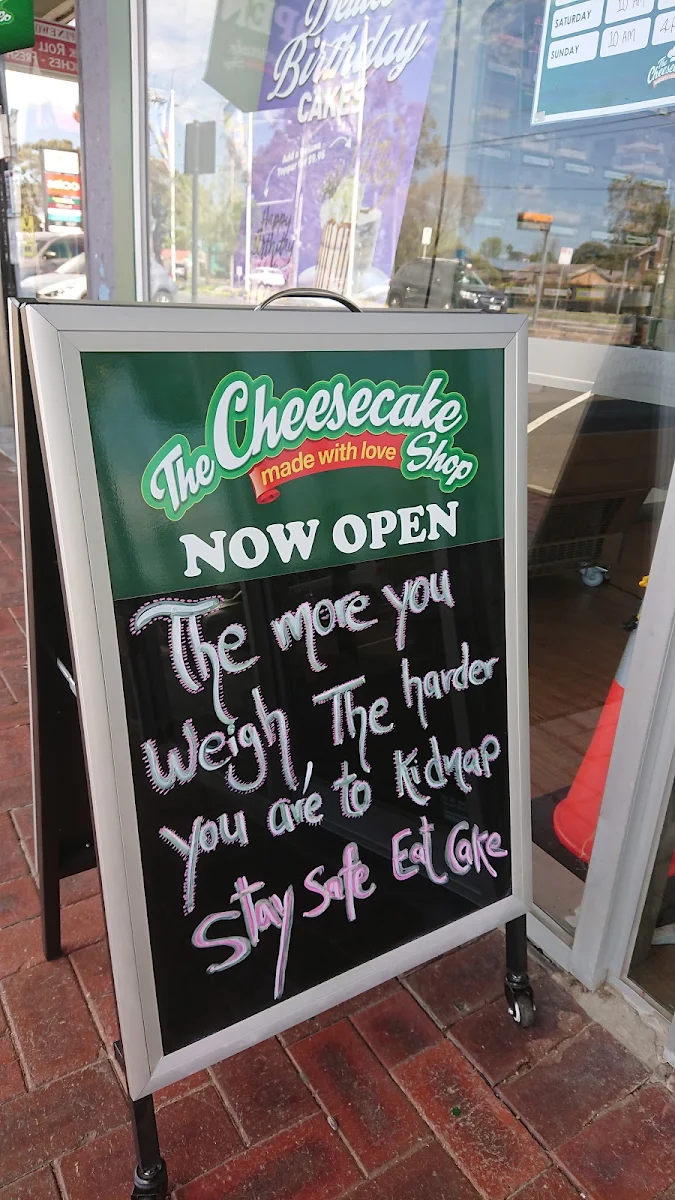 ROLL
SATURDAY 10 AM
SUNDAY 10 AM
Birthday
CAKES
Happy
The Cheesecake Shop
made with love
NOW OPEN
The more you
weigh The harder
you are to kidnap
Stay Safe Eat Cake